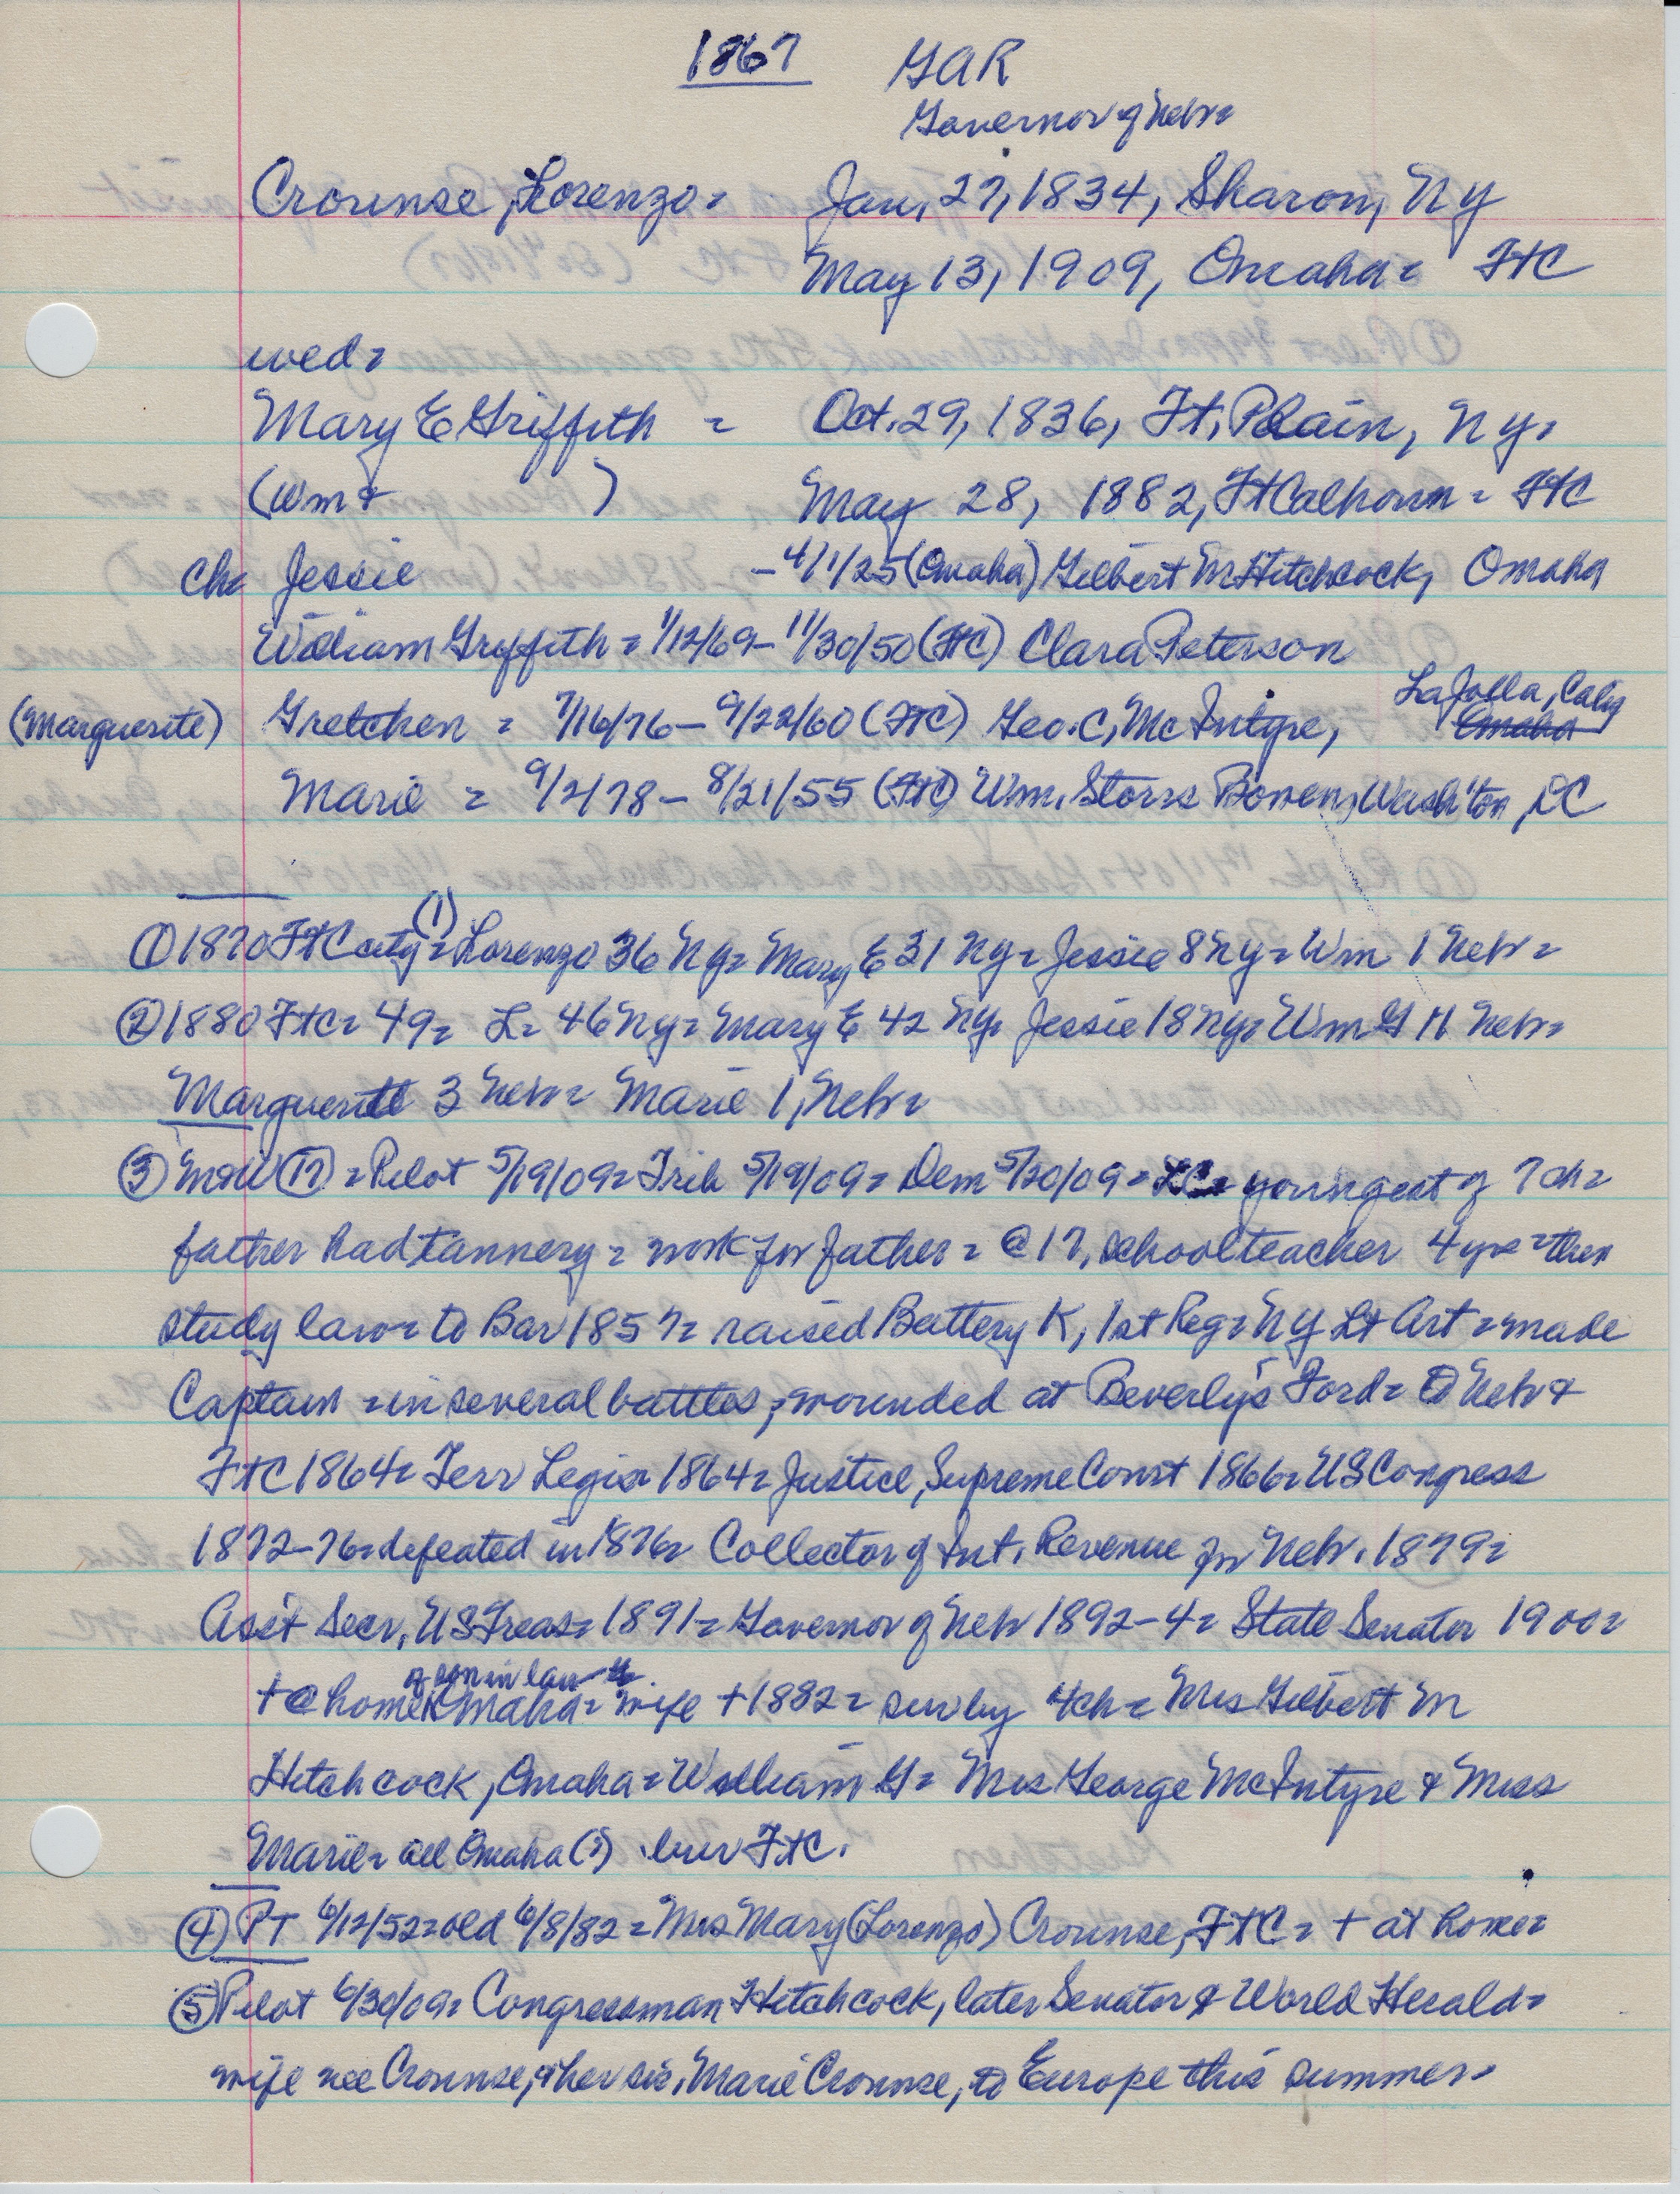 1867 GAR
Governor of Nebr=
Crounse, Lorenzo= Jan, 27, 1834, Sharon, NY
May 13, 1909, Omaha= FtC
wed=
Mary E Griffith = Oct. 29, 1836, Ft, Plain, Ny,
(Wm & ) May 28, 1882, Ft Calhoun = FtC
Ch= Jessie - 4/1/25 (Omaha) Gilbert M Hitchcock, Omaha
William Griffith = 1/12/69- 11/30/50 (FtC) Clara Peterson
La Jolla, Calif
(Marguerite) Gretchen = 7/16/76- 9/22/60 (FtC) Geo. C, McIntyre, Omaha
Marie = 9/2/78- 8/21/55 (FtC) Wm. Storrs Bowen, Wash'ton, DC
① 1870 FtC city (1)= Lorenzo 36 Ny= Mary E 31 Ny= Jessie 8 Ny= Wm 1 Nebr=
② 1880 FtC= 49= L= 46 Ny= Mary E 42 Ny, Jessie 18 Ny= Wm G 11 Nebr=
Marguerite 3 Nebr= Marie 1, Nebr=
③ M&W ⑰ = Pilot 5/19/09= Trib 5/19/09= Dem 5/20/09= LC= youngest of 7 ch=
father had tannery = work for father = @ 17, schoolteacher 4 yrs = then
study law= to Bar 1857= raised Battery K, 1st Reg= NY Lt Art = made
Captain = in several battles, wounded at Beverly's Ford= to Nebr &
FtC 1864= Terr Legis 1864= Justice, Supreme Court 1866= US Congress
1872-76= defeated in 1876= Collector of Int. Revenue for Nebr. 1879=
Ass't Secr, US Treas= 1891= Governor of Nebr 1892-4= State Senator 1900=
of son in law
+ @ home Omaha= wife + 1882= surv by 4 ch= Mrs Gilbert M
Hitchcock, Omaha= William G= Mrs George McIntyre & Miss
Marie= all Omaha (?) bur FtC.
④ PT 6/12/52= old 6/8/82= Mrs Mary (Lorenzo) Crounse, FtC= + at home=
⑤ Pilot 6/30/09= Congressman Hitchcock, later Senator & World Herald=
wife nee Crounse, & her sis, Marie Crounse, to Europe this summer=